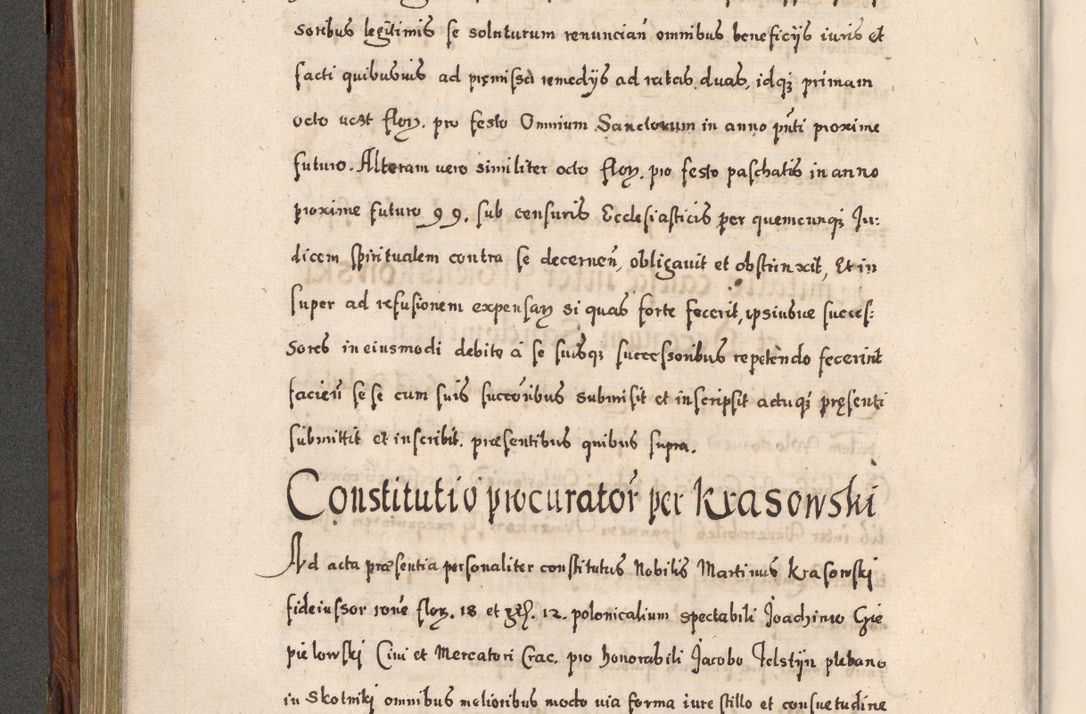 soribus legitimis se soluturum renuncian̄ omnibus beneficijs iuris et
facti quibusuis ad premissa remedijs ad ratas duas, idqꝫ primam
octo flor. pro festo Omnium Sanctorum in anno pn̄ti proxime
futuro. Alteram vero similiter octo flor. pro festo paschatis in anno
proxime futuro 99. sub censuris Ecclesiasticis per quemcunqꝫ Ju:
dicem spiritualem contra se decernen̄, obligauit et obstrinxit, Et in
super ad refusionem expensarum si quas forte fecerit, ipsiusue succes:
sores in eiusmodi debito á se suisqꝫ successoribus repetendo fecerint
facien̄ sese cum suis succōribus submisit et inscripsit actuqꝫ pręsenti
submittit et inscribit. præsentibus quibus supra.
Constitutio procurator̄ per Krasowski
Ad acta præsentia personaliter constitutus Nobilis Martinus Krasowskj
fideiussor ron̄e flor. 18 et gr. 12. polonicalium spectabili Joachimo Cie
pielowskj Ciui et Mercatori Crac. pro honorabili Jacobo Jelstijn plebano
in Skotnikj omnibus melioribus modo via forma iure stillo et consuetudine